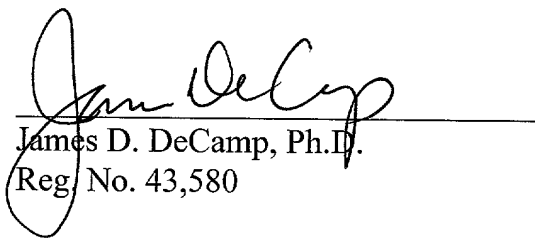 James DeCamp
James D. DeCamp, Ph.D.
Reg. No. 43,580